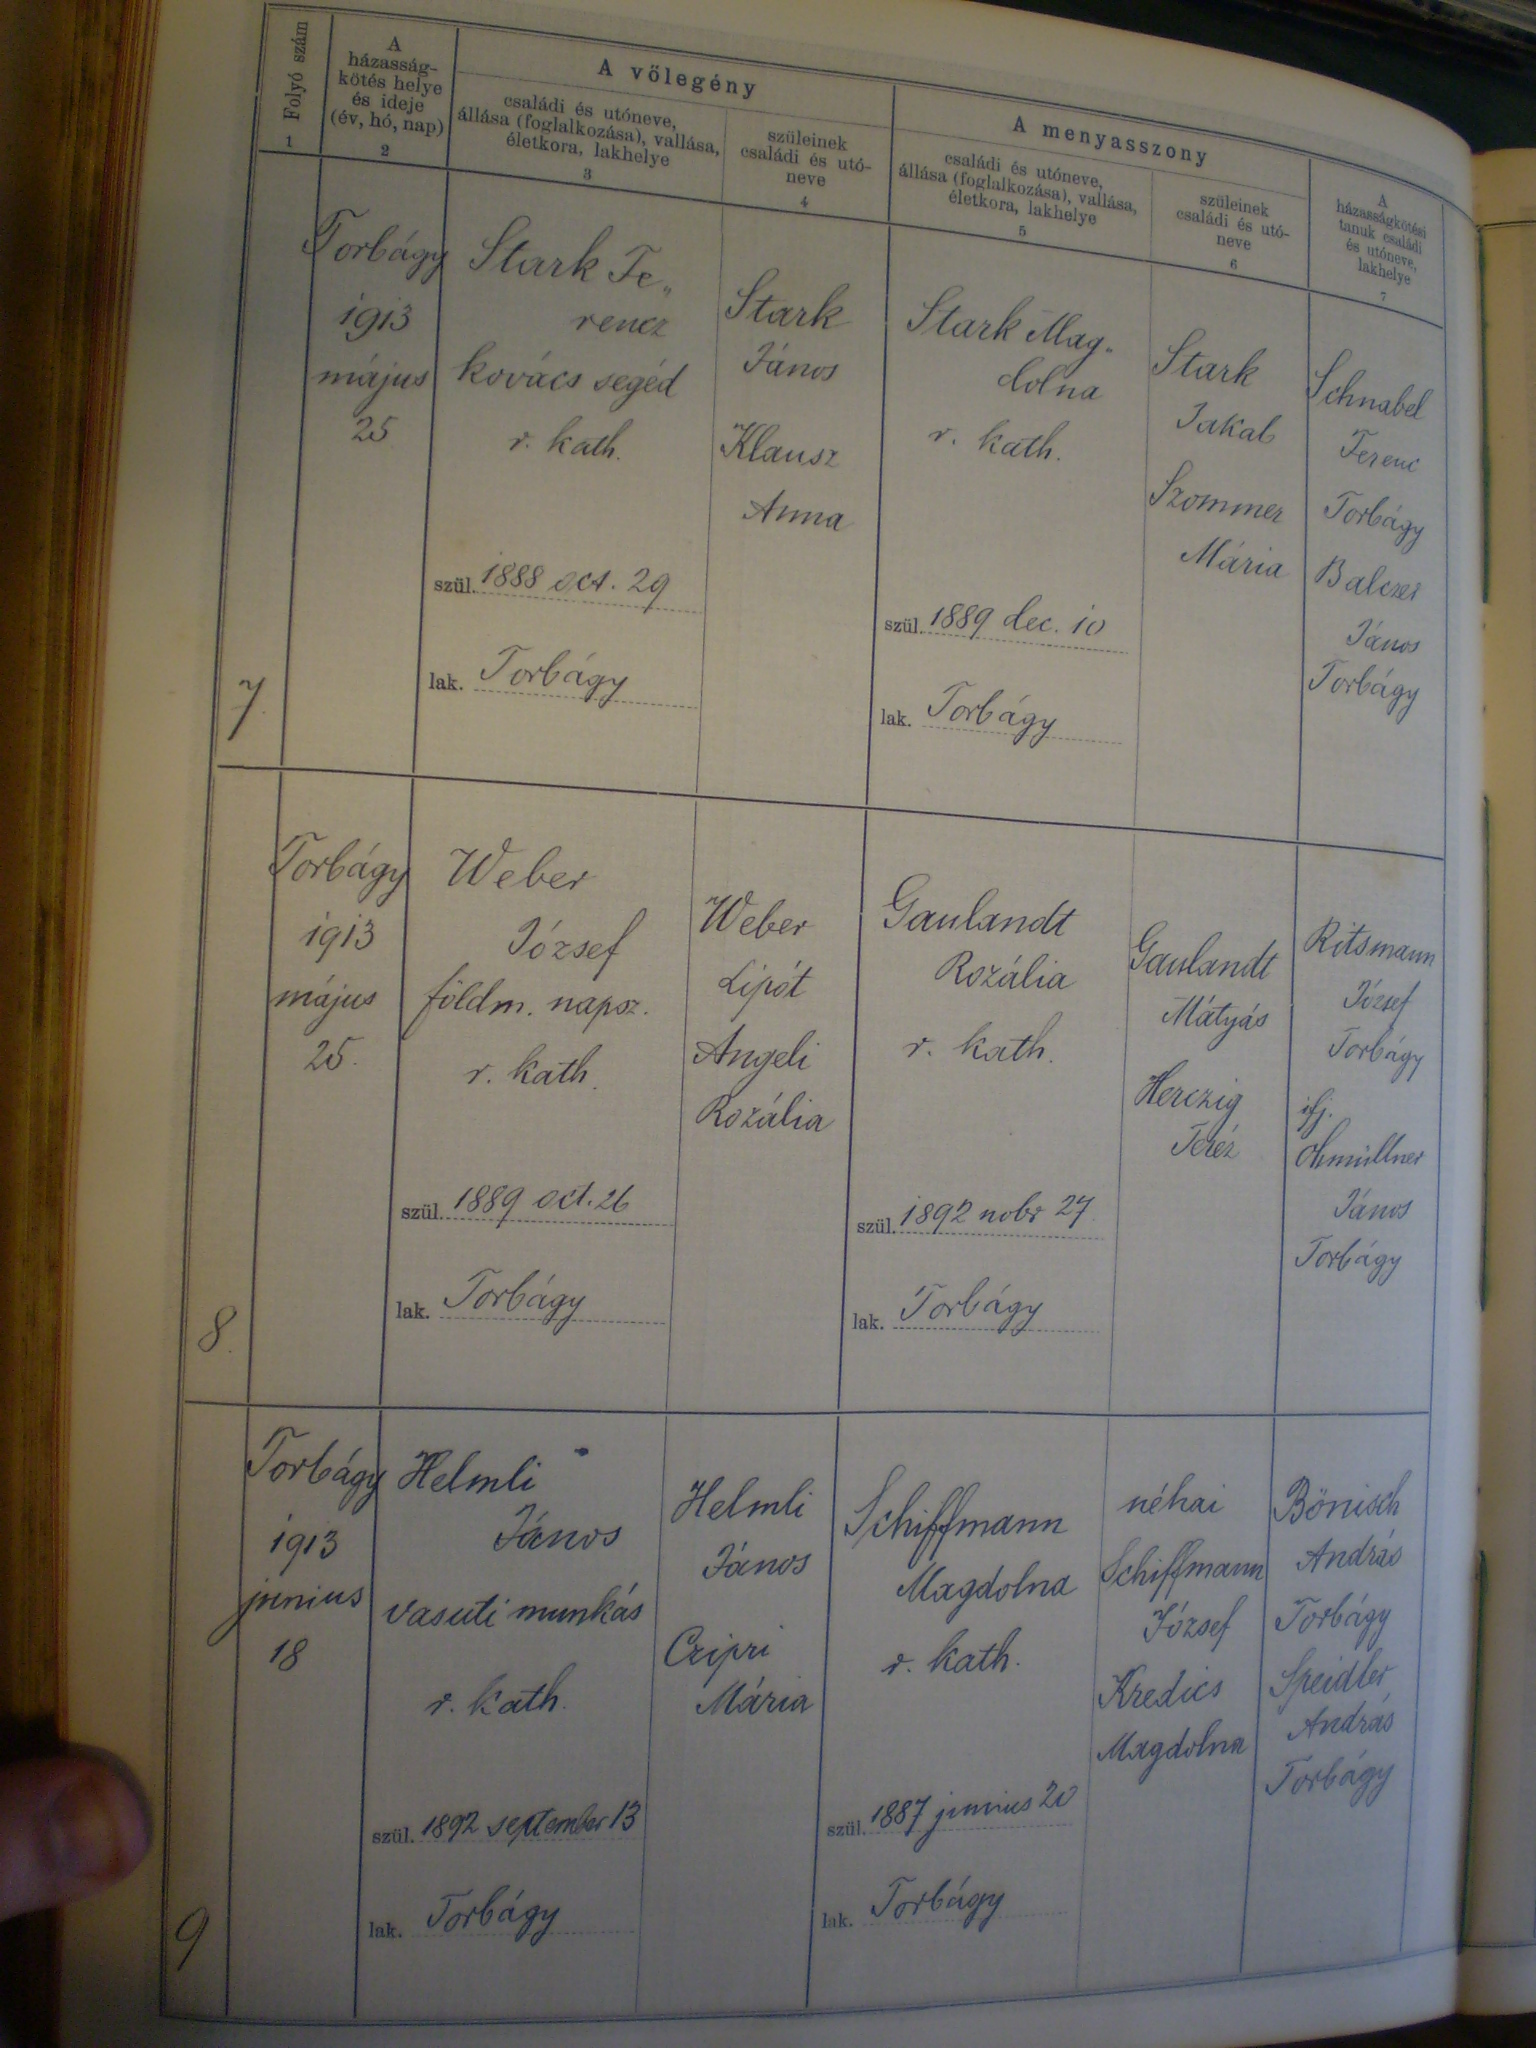 Folyó szám
1
A
házasság-
kötés helye
és ideje
(év, hó, nap)
2
A vőlegény
családi és utóneve,
állása (foglalkozása), vallása,
életkora, lakhelye
3
szüleinek
családi és utó-
neve
4
A menyasszony
családi és utóneve,
állása (foglalkozása), vallása,
életkora, lakhelye
5
szüleinek
családi és utó-
neve
6
A
házasságkötési
tanuk családi
és utóneve,
lakhelye
7
7.
Torbágy
1913
május
25
Stark Fe„
rencz
kovács segéd
r. kath.
szül. 1888 oct. 29
lak. Torbágy
Stark
János
Klausz
Anna
Stark Mag„
dolna
r. kath.
szül. 1889 dec. 10
lak. Torbágy
Stark
Jakab
Szommer
Mária
Schnabel
Ferenc
Torbágy
Balczer
János
Torbágy
8.
Torbágy
1913
május
25.
Weber
József
földm. napsz.
r. kath.
szül. 1889 oct. 26
lak. Torbágy
Weber
Lipót
Angeli
Rozália
Gaulandt
Rozália
r. kath.
szül. 1892 nobr 27
lak. Torbágy
Gaulandt
Mátyás
Herczig
Teréz
Ritsmann
József
Torbágy
ifj.
Ohmüllner
János
Torbágy
9
Torbágy
1913
junius
18
Helmli
János
vasuti munkás
r. kath.
szül. 1892 september 13
lak. Torbágy
Helmli
János
Czipri
Mária
Schiffmann
Magdolna
r. kath.
szül. 1887 junius 20
lak. Torbágy
néhai
Schiffmann
József
Kredics
Magdolna
Bönisch
András
Torbágy
Speidler
András
Torbágy